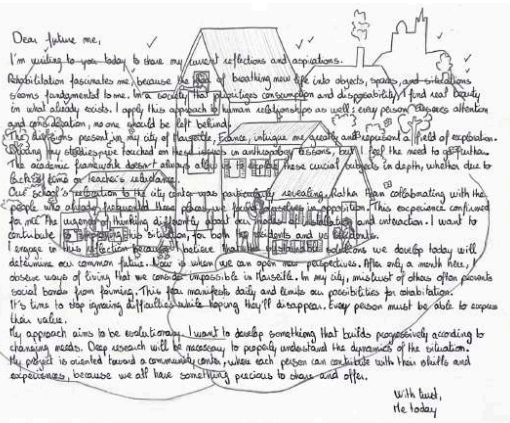 Dear future me,
I'm writing to you today to share my current reflections and aspirations.
Rehabilitation fascinates me, because the idea of breathing new life into objects, spaces, and situations
seems fundamental to me. In a society that prioritizes consumption and disposability, I find real beauty
in what already exists. I apply this approach to human relationships as well: every person deserves attention
and consideration, no one should be left behind.
The divisions present in my city of Marseille, France, intrigue me greatly and represent a field of exploration.
During my studies, we touched on these issues in anthropology lessons, but I feel the need to go further.
The academic framework doesn't always allow us to explore these crucial subjects in depth, whether due to
lack of time or teacher's reluctance.
Our school's relocation to the city center was particularly revealing. Rather than collaborating with the
people who already frequented these places, we found ourselves in opposition. This experience confirmed
for me the urgency of thinking differently about our modes of and interaction. I want to
contribute to this situation, for both the residents and us students.
I engage in this reflection because I believe that the solutions we develop today will
determine our common future. Now is when we can open new perspectives. After only a month here, I
observe ways of living that we consider impossible in Marseille. In my city, mistrust of others often prevents
social bonds from forming. This fear manifests daily and limits our possibilities for cohabitation.
It's time to stop ignoring difficulties while hoping they'll disappear. Every person must be able to express
their value.
My approach aims to be evolutionary. I want to develop something that builds progressively according to
changing needs. Deep research will be necessary to properly understand the dynamics of the situation.
My project is oriented toward a community center, where each person can contribute with their skills and
experiences, because we all have something precious to share and offer.
With
Me today